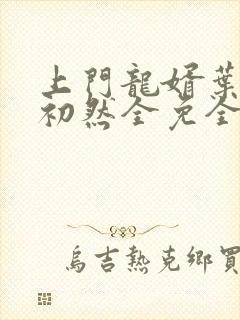 上門龍婿葉
初然全免全
烏吉熱克鄉買